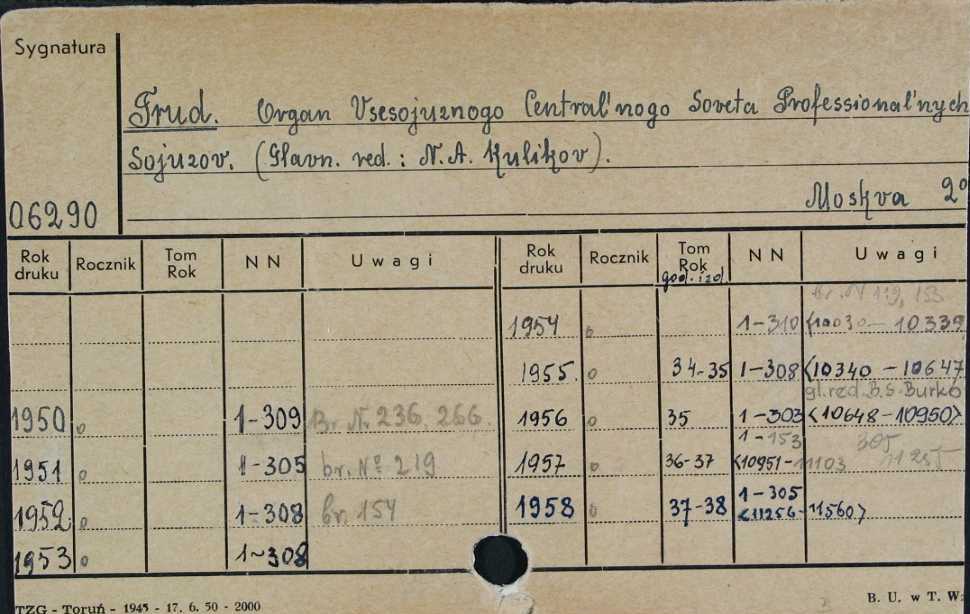 Sygnatura
Trud. Organ Vsesojuznogo Central'nogo Soveta Professional'nych
Sojuzov. (Glavn. red.: N. A. Kulikov).
06290 Moskva 2°
Rok druku Rocznik Tom Rok NN Uwagi Rok druku Rocznik Tom Rok god. izd. NN Uwagi
br. N 119, 153
1954 o 1-310 <10030 - 10339
1955. o 34-35 1-308 <10340 - 10647
gl. red. B.S. Burko
1950 o 1-309 Br. N. 236. 266. 1956 o 35 1-303 <10648-10950>
1-153 305
1951 o 1-305 br. Nº 219 1957 o 36-37 <10951-11103 11255
1952 o 1-308 br. 154 1958 o 37-38 1-305
<11256-11560>
1953 o 1-308
TZG - Toruń - 1945 - 17. 6. 50 - 2000
B. U. w T. W: